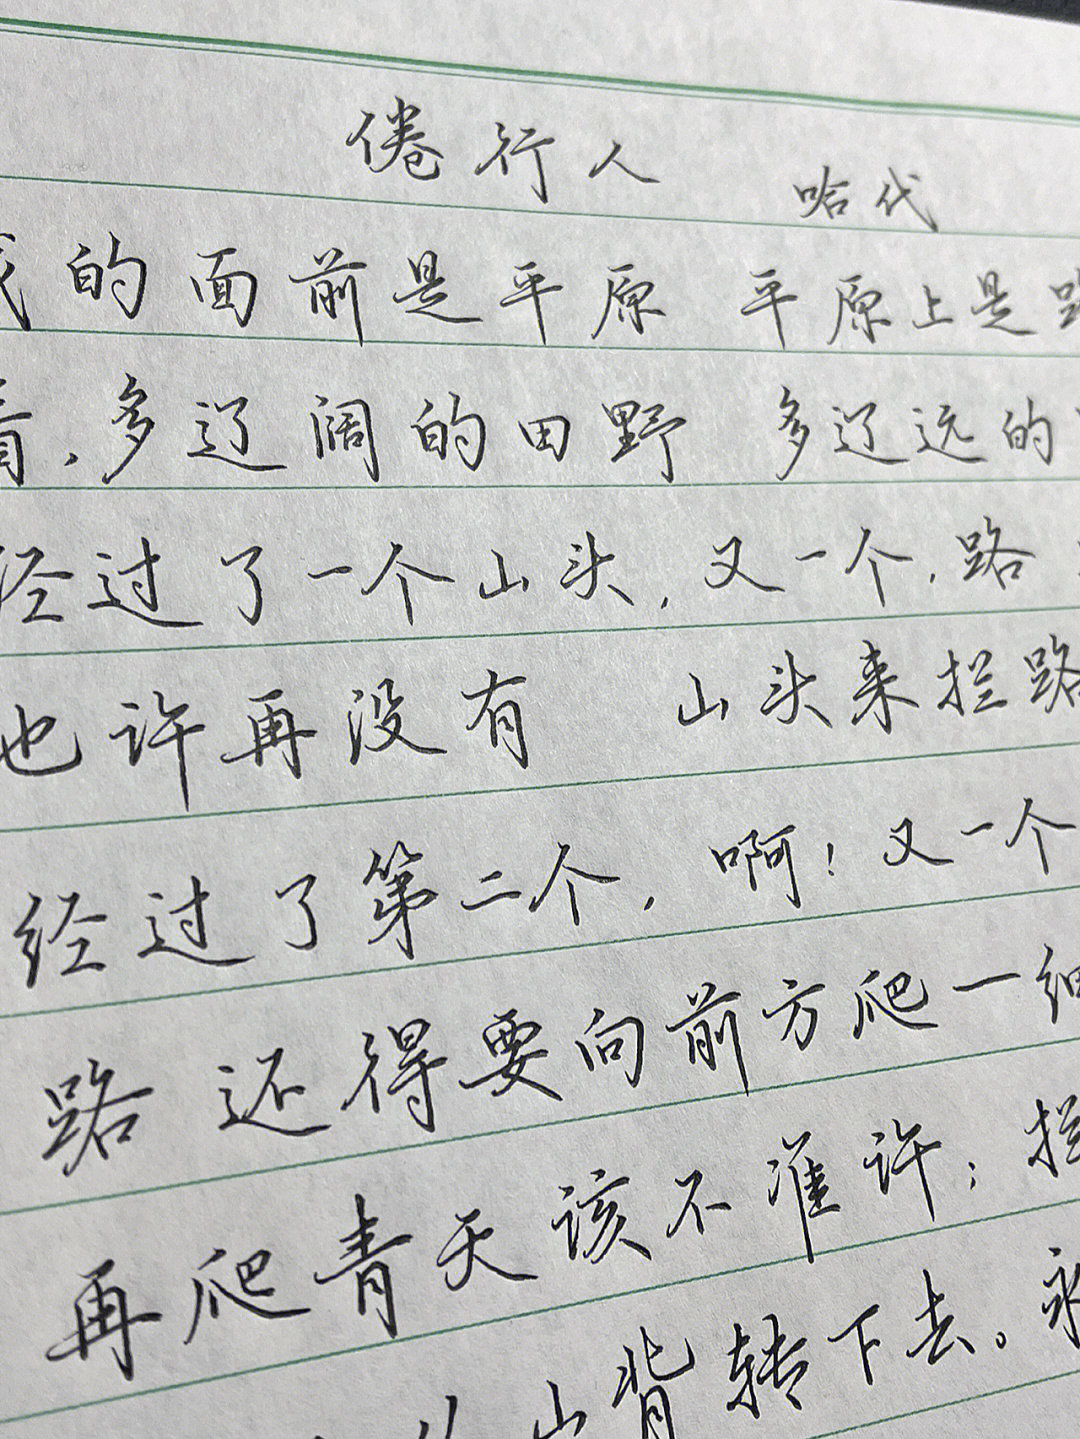 倦行人 哈代
我的面前是平原 平原上是路
看,多辽阔的田野 多辽远的
经过了一个山头,又一个,路
也许再没有 山头来拦路
经过了第二个,啊!又一个
路 还得要向前方爬一细
再爬青天该不准许;拦
山背转下去。永